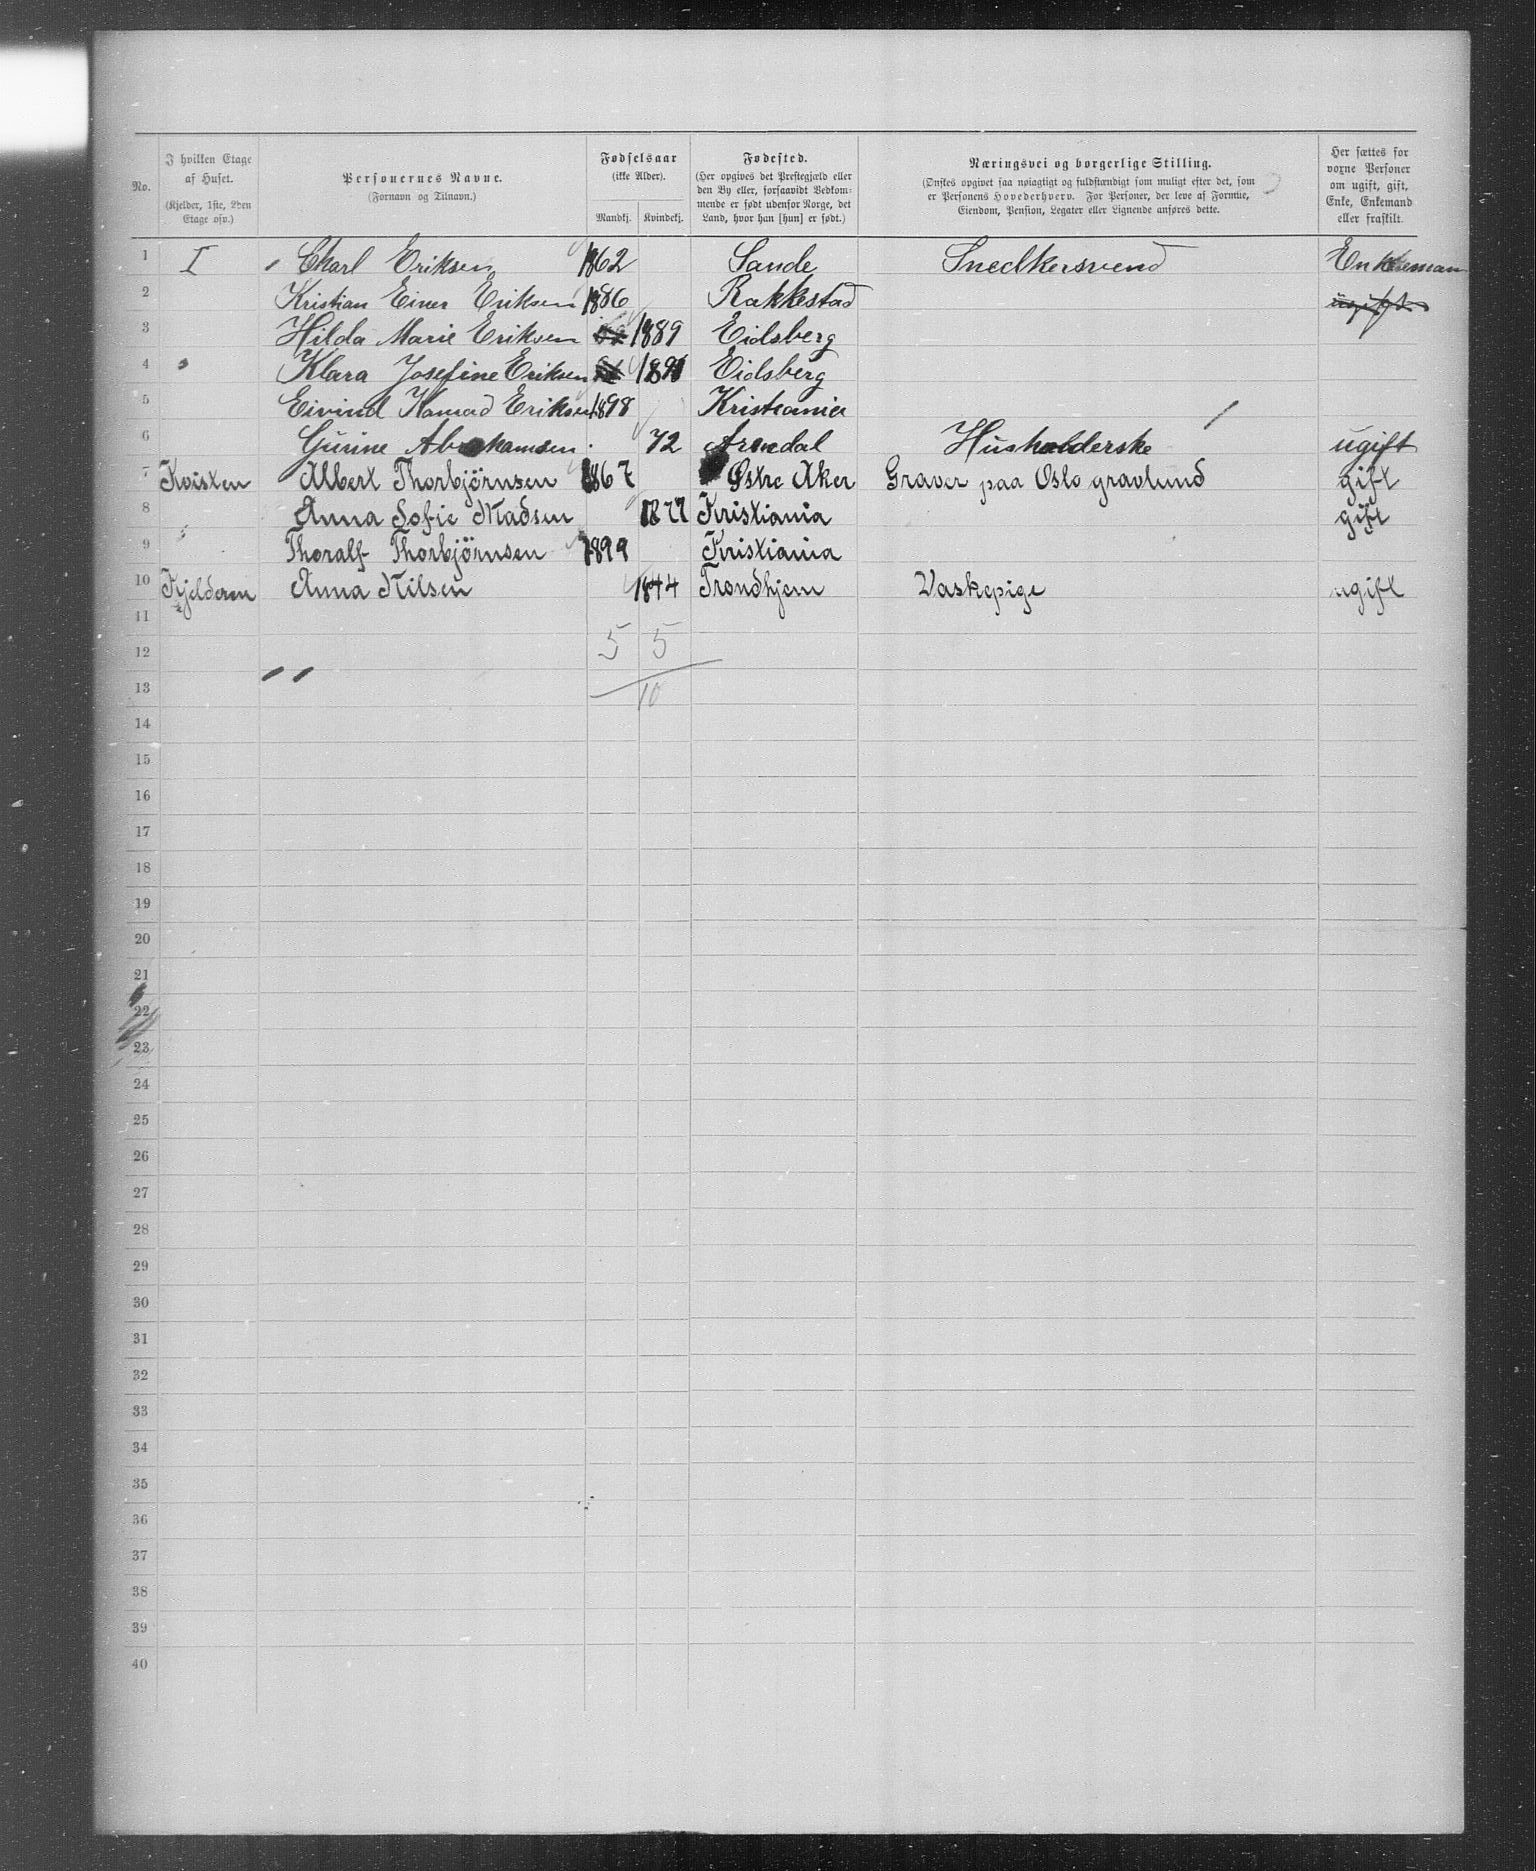 No.	I hvilken Etage af Huset. (Kjelder, 1ste, 2den Etage osv.)	Personernes Navne. (Fornavn og Tilnavn.)	Fødselsaar (ikke Alder). Mandkj. Kvindekj.	Fødested. (Her opgives det Prestegjæld eller den By eller, forsaavidt Vedkommende er født udenfor Norge, det Land, hvor han [hun] er født.)	Næringsvei og borgerlige Stilling. (Ønskes opgivet saa nøiagtigt og fuldstændigt som muligt efter det, som er Personens Hovederhverv. For Personer, der leve af Formue, Eiendom, Pension, Legater eller Lignende anføres dette.	Her sættes for voxne Personer om ugift, gift, Enke, Enkemand eller fraskilt.
1 I Charl Eriksen 1862 Sande Snedkersvend Enkeman
2 Kristian Einer Eriksen 1886 Rakkestad ugift
3 Hilda Marie Eriksen 1889 Eidsberg
4 Klara Josefine Eriksen 1891 Eidsberg
5 Eivind Konrad Eriksen 1898 Kristiania
6 Gurine Abrahamsen 72 Arendal Husholderske ugift
7 Kvisten Albert Thorbjörnsen 1867 Østre Aker Graver paa Oslo gravlund gift
8 Anna Sofie Madsen 1877 Kristiania gift
9 Thoralf Thorbjörnsen 1899 Kristiania
10 Kjelderen Anna Nilsen 1844 Trondhjem Vaskepige ugift
11
12 5 5
13 10
14
15
16
17
18
19
20
21
22
23
24
25
26
27
28
29
30
31
32
33
34
35
36
37
38
39
40